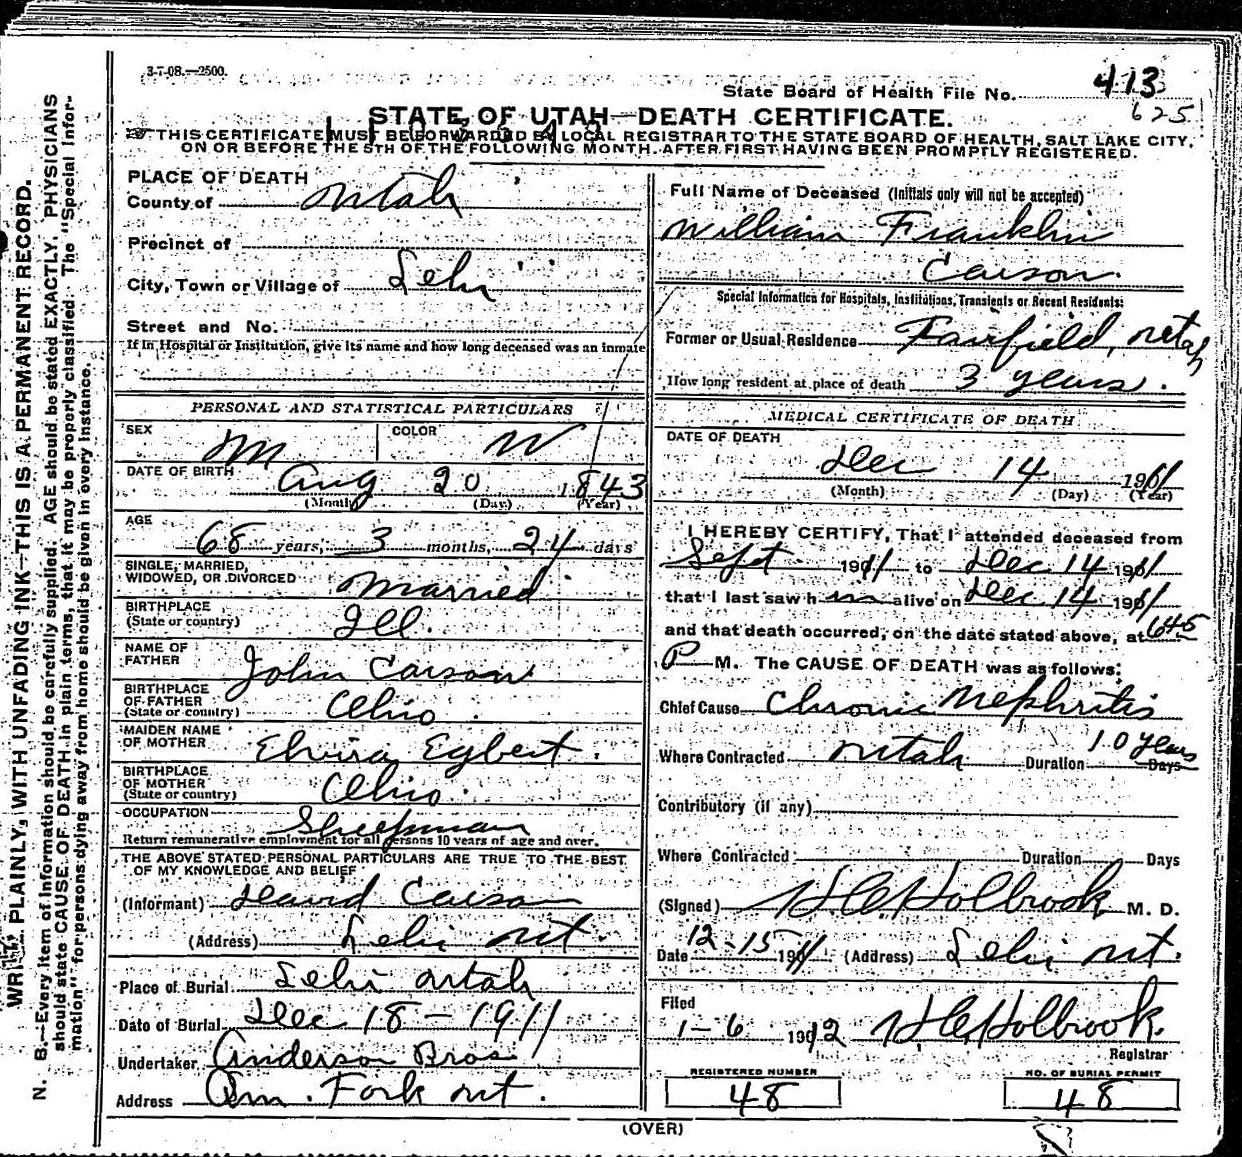 3-7-08.—2500.
State Board of Health File No. 413
625
STATE OF UTAH—DEATH CERTIFICATE.
THIS CERTIFICATE MUST BE FORWARDED BY LOCAL REGISTRAR TO THE STATE BOARD OF HEALTH, SALT LAKE CITY,
ON OR BEFORE THE 5TH OF THE FOLLOWING MONTH. AFTER FIRST HAVING BEEN PROMPTLY REGISTERED.
WRITE PLAINLY, WITH UNFADING INK—THIS IS A PERMANENT RECORD.
N. B.—Every item of information should be carefully supplied. AGE should be stated EXACTLY. PHYSICIANS
should state CAUSE OF DEATH in plain terms, that it may be properly classified. The "Special Infor-
mation" for persons dying away from home should be given in every instance.
PLACE OF DEATH
County of Utah
Precinct of
City, Town or Village of Lehi
Street and No.
If in Hospital or Institution, give its name and how long deceased was an inmate
PERSONAL AND STATISTICAL PARTICULARS
SEX M COLOR W
DATE OF BIRTH Aug 20 1843
(Month) (Day) (Year)
AGE 68 years, 3 months, 24 days
SINGLE, MARRIED,
WIDOWED, OR DIVORCED Married
BIRTHPLACE
(State or country) Ill.
NAME OF
FATHER John Carson
BIRTHPLACE
OF FATHER
(State or country) Ohio.
MAIDEN NAME
OF MOTHER Elvira Egbert.
BIRTHPLACE
OF MOTHER
(State or country) Ohio.
OCCUPATION Sheepman
Return remunerative employment for all persons 10 years of age and over.
THE ABOVE STATED PERSONAL PARTICULARS ARE TRUE TO THE BEST
OF MY KNOWLEDGE AND BELIEF
(Informant) David Carson
(Address) Lehi Ut.
Place of Burial Lehi Utah
Date of Burial Dec 18-1911
Undertaker Anderson Bros
Address Am. Fork Ut.
Full Name of Deceased (Initials only will not be accepted)
William Franklin
Carson.
Special Information for Hospitals, Institutions, Transients or Recent Residents:
Former or Usual Residence Fairfield, Utah
How long resident at place of death 3 years.
MEDICAL CERTIFICATE OF DEATH
DATE OF DEATH
Dec 14 1911
(Month) (Day) (Year)
I HEREBY CERTIFY, That I attended deceased from
Sept 1911 to Dec 14 1911
that I last saw him alive on Dec 14 1911
and that death occurred, on the date stated above, at 6 45
P M. The CAUSE OF DEATH was as follows:
Chief Cause Chronic Nephritis
Where Contracted Utah. Duration 10 years Days
Contributory (if any)
Where Contracted Duration Days
(Signed) H.C. Holbrook M. D.
Date 12-15 1911 (Address) Lehi Ut.
Filed
1-6 1912 H.C. Holbrook.
Registrar
REGISTERED NUMBER NO. OF BURIAL PERMIT
48 48
(OVER)